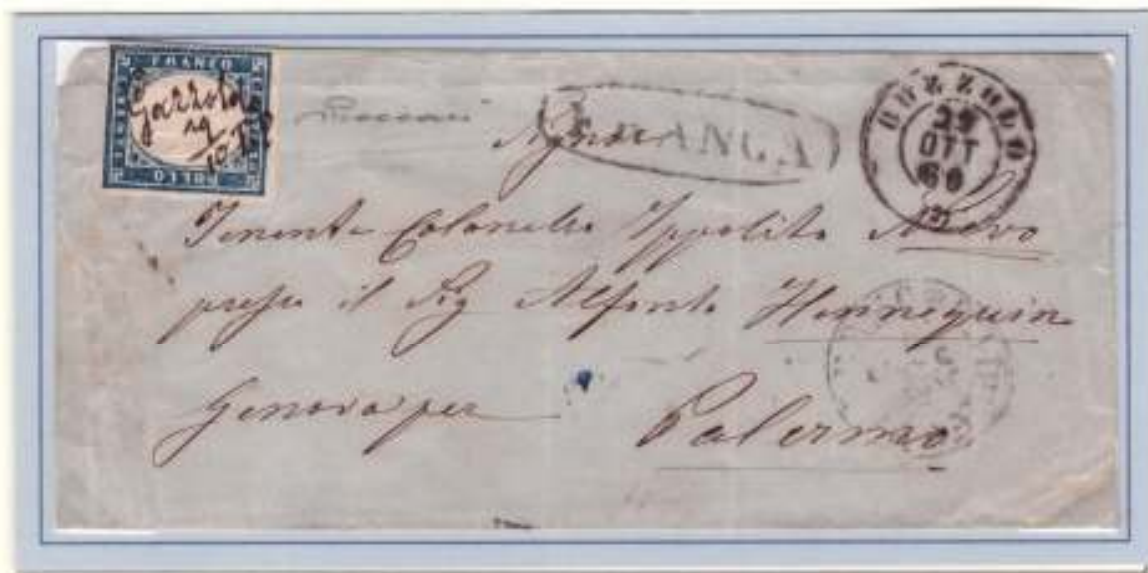 FRANCO
BOLLO
Gazzoldo
29
10
FRANCA
BOZZOLO
29
OTT
60
Signor
Tenente Colonello Yppolito Nievo
presso il Sig Alfonso Hennequin
Genova per Palermo